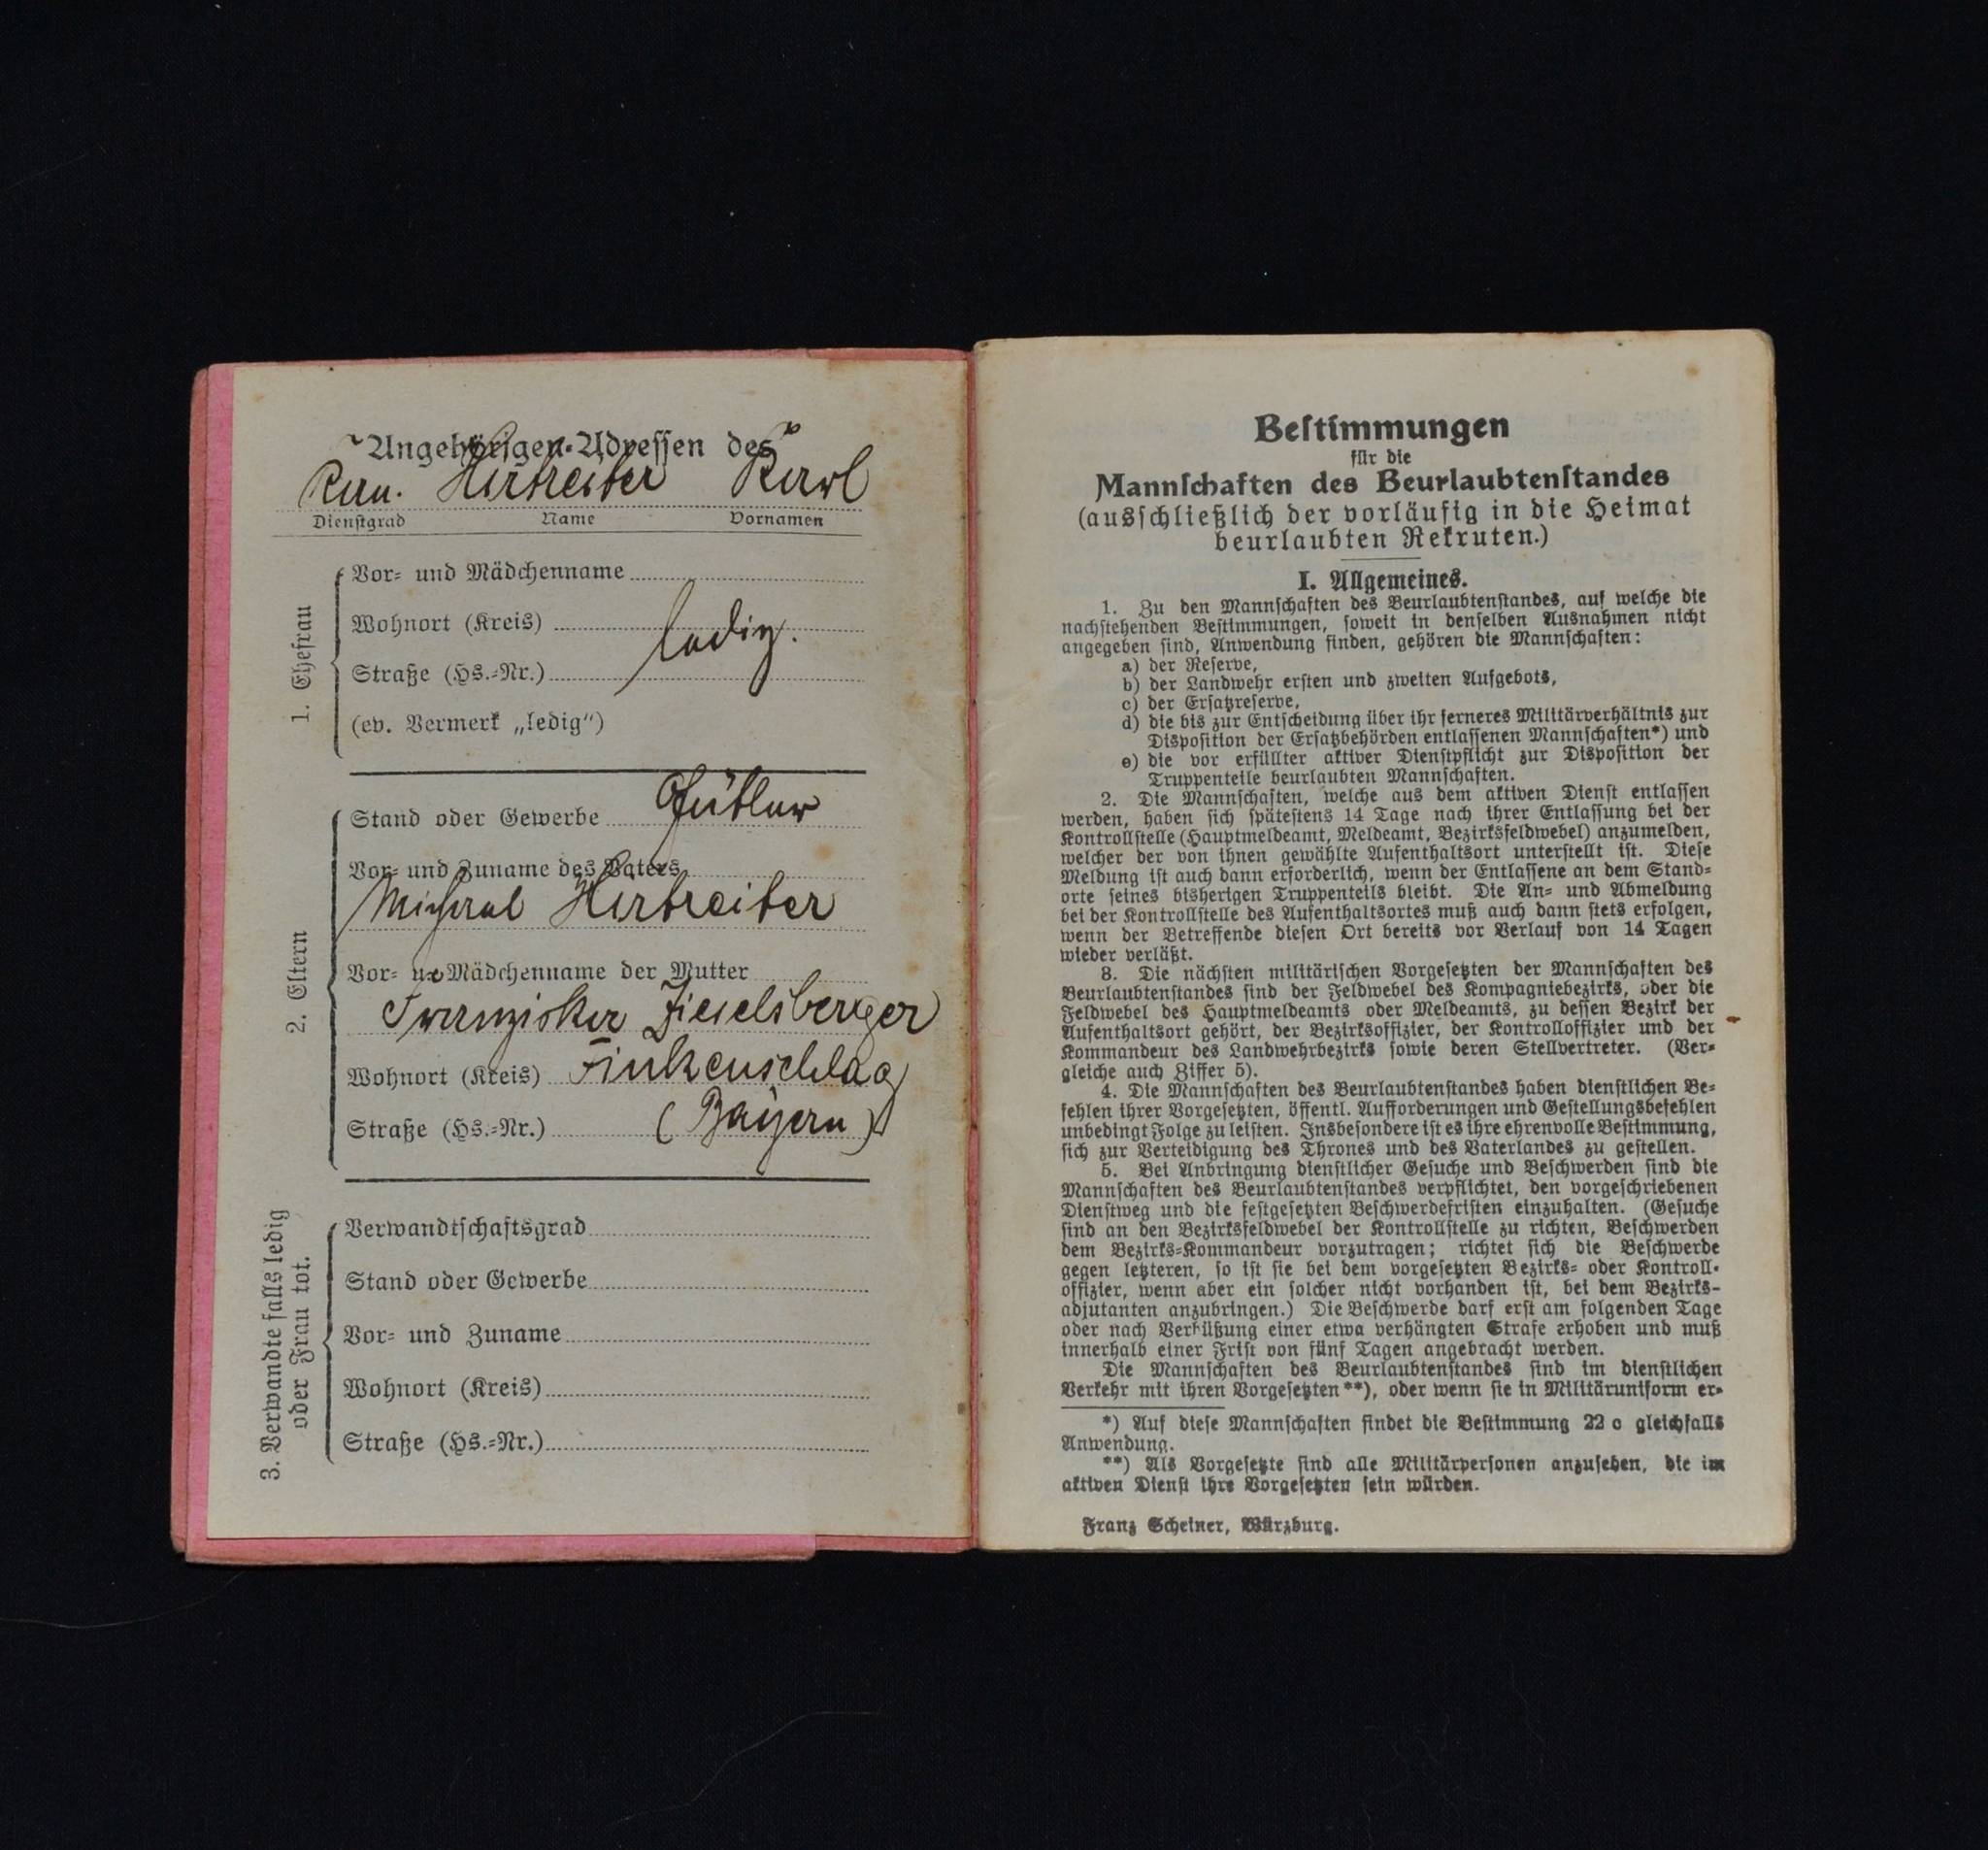 Angehörigen-Adressen des
Kan. Hirtreiter Karl
Dienstgrad Name Vornamen
1. Ehefrau
Vor- und Mädchenname
Wohnort (Kreis)
ledig.
Straße (Hs.-Nr.)
(ev. Vermerk „ledig“)
2. Eltern
Stand oder Gewerbe Gütler
Vor- und Zuname des Vaters
Michael Hirtreiter
Vor- und Mädchenname der Mutter
Franziska
Wohnort (Kreis) Finkenschlag
Straße (Hs.-Nr.) (Bayern)
3. Verwandte falls ledig
oder Frau tot.
Verwandtschaftsgrad
Stand oder Gewerbe
Vor- und Zuname
Wohnort (Kreis)
Straße (Hs.-Nr.)
Bestimmungen
für die
Mannschaften des Beurlaubtenstandes
(ausschließlich der vorläufig in die Heimat
beurlaubten Rekruten.)
I. Allgemeines.
1. Zu den Mannschaften des Beurlaubtenstandes, auf welche die
nachstehenden Bestimmungen, soweit in denselben Ausnahmen nicht
angegeben sind, Anwendung finden, gehören die Mannschaften:
a) der Reserve,
b) der Landwehr ersten und zweiten Aufgebots,
c) der Ersatzreserve,
d) die bis zur Entscheidung über ihr ferneres Militärverhältnis zur
Disposition der Ersatzbehörden entlassenen Mannschaften*) und
e) die vor erfüllter aktiver Dienstpflicht zur Disposition der
Truppenteile beurlaubten Mannschaften.
2. Die Mannschaften, welche aus dem aktiven Dienst entlassen
werden, haben sich spätestens 14 Tage nach ihrer Entlassung bei der
Kontrollstelle (Hauptmeldeamt, Meldeamt, Bezirksfeldwebel) anzumelden,
welcher der von ihnen gewählte Aufenthaltsort unterstellt ist. Diese
Meldung ist auch dann erforderlich, wenn der Entlassene an dem Stand-
orte seines bisherigen Truppenteils bleibt. Die An- und Abmeldung
bei der Kontrollstelle des Aufenthaltsortes muß auch dann stets erfolgen,
wenn der Betreffende diesen Ort bereits vor Verlauf von 14 Tagen
wieder verläßt.
3. Die nächsten militärischen Vorgesetzten der Mannschaften des
Beurlaubtenstandes sind der Feldwebel des Kompagniebezirks, oder die
Feldwebel des Hauptmeldeamts oder Meldeamts, zu dessen Bezirk der
Aufenthaltsort gehört, der Bezirksoffizier, der Kontrolloffizier und der
Kommandeur des Landwehrbezirks sowie deren Stellvertreter. (Ver-
gleiche auch Ziffer 5).
4. Die Mannschaften des Beurlaubtenstandes haben dienstlichen Be-
fehlen ihrer Vorgesetzten, öffentl. Aufforderungen und Gestellungsbefehlen
unbedingt Folge zu leisten. Insbesondere ist es ihre ehrenvolle Bestimmung,
sich zur Verteidigung des Thrones und des Vaterlandes zu gestellen.
5. Bei Anbringung dienstlicher Gesuche und Beschwerden sind die
Mannschaften des Beurlaubtenstandes verpflichtet, den vorgeschriebenen
Dienstweg und die festgesetzten Beschwerdefristen einzuhalten. (Gesuche
sind an den Bezirksfeldwebel der Kontrollstelle zu richten, Beschwerden
dem Bezirks-Kommandeur vorzutragen; richtet sich die Beschwerde
gegen letzteren, so ist sie bei dem vorgesetzten Bezirks- oder Kontroll-
offizier, wenn aber ein solcher nicht vorhanden ist, bei dem Bezirks-
adjutanten anzubringen.) Die Beschwerde darf erst am folgenden Tage
oder nach Verbüßung einer etwa verhängten Strafe erhoben und muß
innerhalb einer Frist von fünf Tagen angebracht werden.
Die Mannschaften des Beurlaubtenstandes sind im dienstlichen
Verkehr mit ihren Vorgesetzten**), oder wenn sie in Militäruniform er-
*) Auf diese Mannschaften findet die Bestimmung 22 c gleichfalls
Anwendung.
**) Als Vorgesetzte sind alle Militärpersonen anzusehen, die im
aktiven Dienst ihre Vorgesetzten sein würden.
Franz Scheiner, Würzburg.